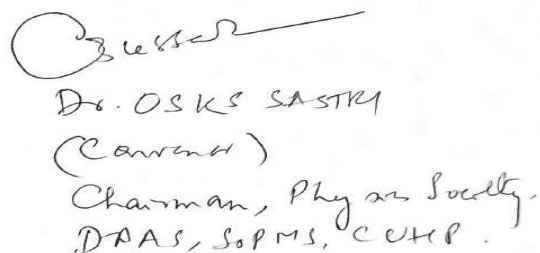 Dr. OSKS SASTRY
(Convener)
Chairman, Physics Society.
DPAS, SoPMS, CUHP.